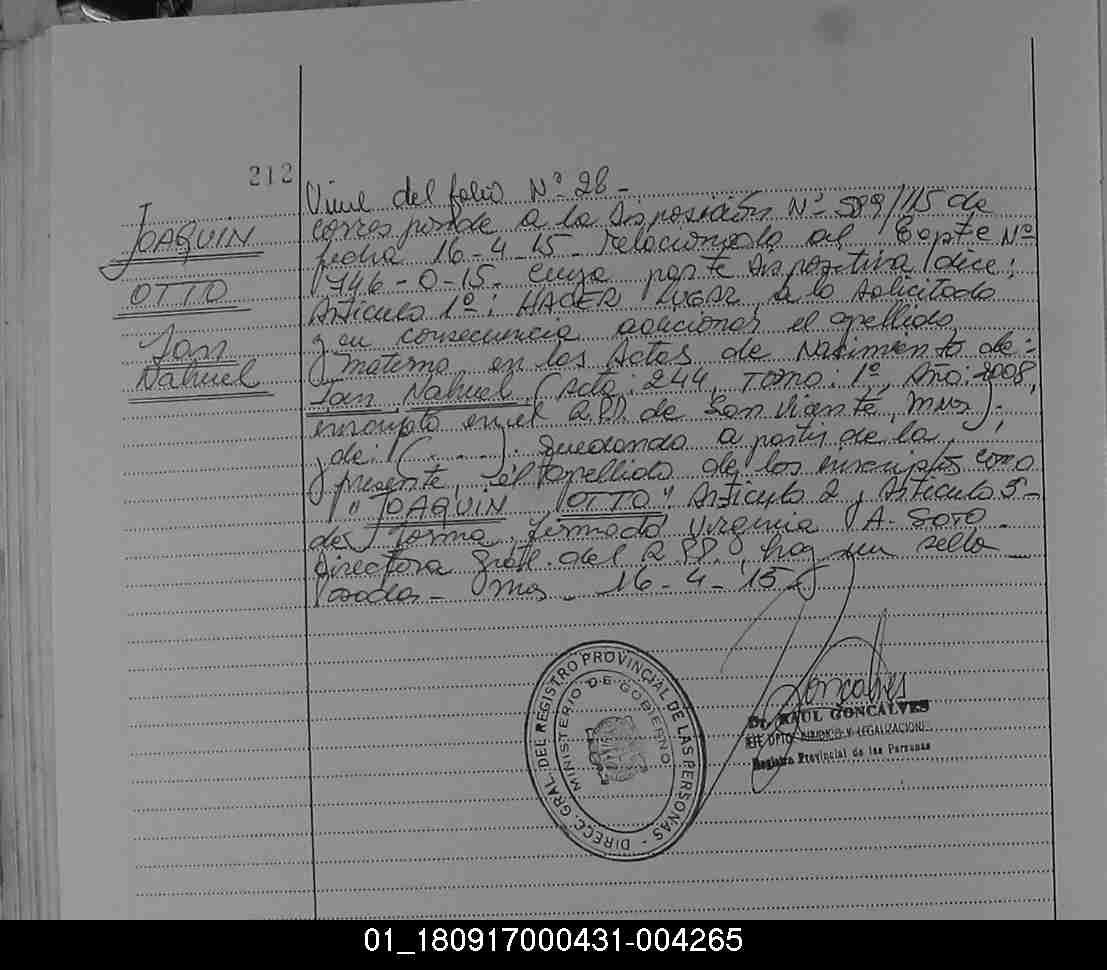 212
JOAQUIN
OTTO
Ian
Nahuel
Viene del folio Nº 28 -
corresponde a la disposición Nº 589/15 de
fecha 16-4-15 relacionada al Expte Nº
1746-0-15. cuya parte dispositiva dice:
Artículo 1º: HACER LUGAR a lo solicitado
y en consecuencia adicionar el apellido
materno en las Actas de Nacimiento de:
Ian Nahuel (Acta: 244, Tomo: 1º, Año: 2008,
inscripto en el RPP. de San Vicente, Mnes).
de: (........). quedando a partir de la
presente, el apellido de los inscriptos como
"JOAQUIN OTTO" Artículo 2 y Artículo 3º-
de forma. firmado Virginia A. SOTO
Directora Gral. del RPP. hay un sello
16-4-15
DIRECC. GRAL. DEL REGISTRO PROVINCIAL DE LAS PERSONAS -
MINISTERIO DE GOBIERNO
Goncalves
Dr. RAUL GONCALVES
JEFE DPTO. Y LEGALIZACION
Registro Provincial de las Personas
01_180917000431-004265